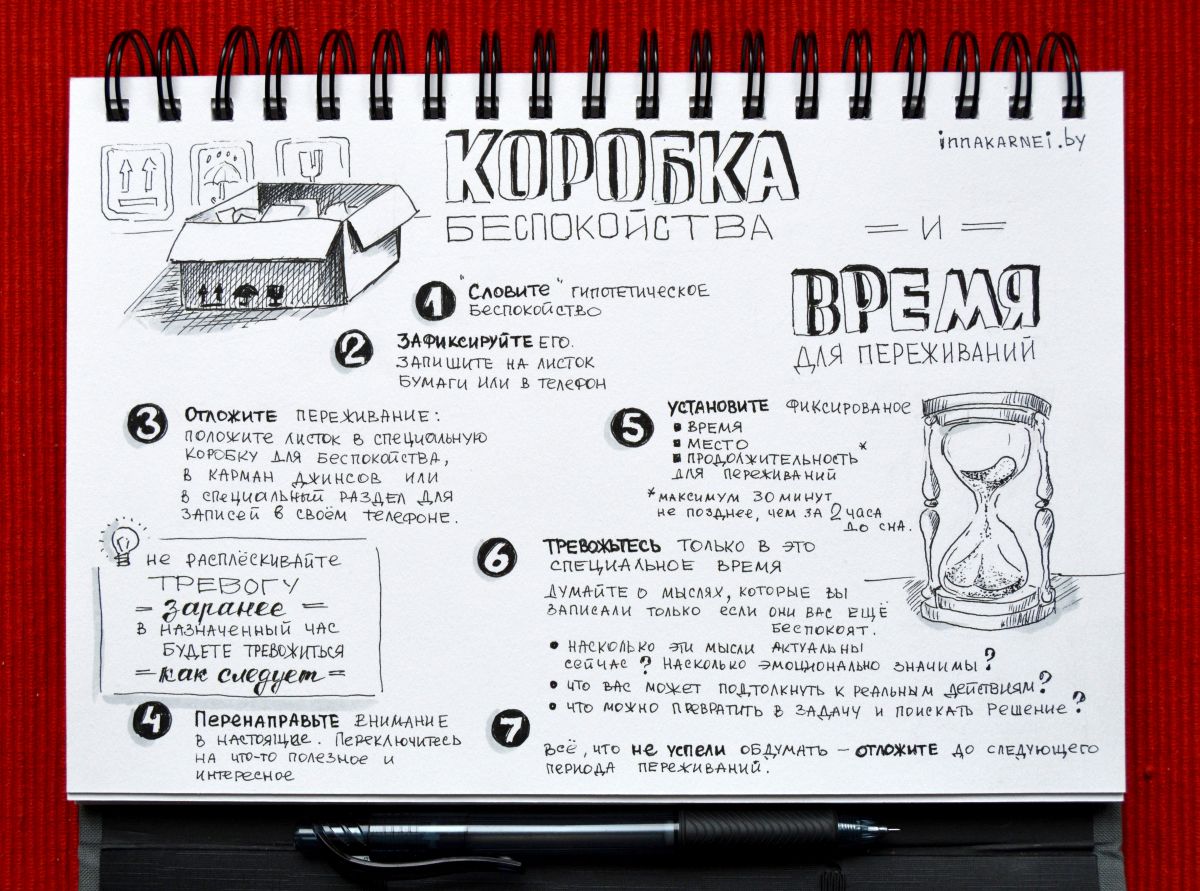 innakarnei.by
КОРОБКА
БЕСПОКОЙСТВА
И
ВРЕМЯ
ДЛЯ ПЕРЕЖИВАНИЙ
1 "Словите" гипотетическое
беспокойство
2 Зафиксируйте его.
Запишите на листок
бумаги или в телефон
3 Отложите переживание:
положите листок в специальную
коробку для беспокойства,
в карман джинсов или
в специальный раздел для
записей в своём телефоне.
Не расплёскивайте
тревогу
= заранее =
в назначенный час
будете тревожиться
= как следует =
4 Перенаправьте внимание
в настоящие. Переключитесь
на что-то полезное и
интересное
5 Установите фиксированое
▪ время
▪ место
▪ продолжительность*
для переживаний
*максимум 30 минут
не позднее, чем за 2 часа
до сна.
6 Тревожьтесь только в это
специальное время
Думайте о мыслях, которые вы
записали только если они вас ещё
беспокоят.
• Насколько эти мысли актуальны
сейчас? Насколько эмоционально значимы?
• Что вас может подтолкнуть к реальным действиям?
• Что можно превратить в задачу и поискать решение?
7 Всё, что не успели обдумать – отложите до следующего
периода переживаний.